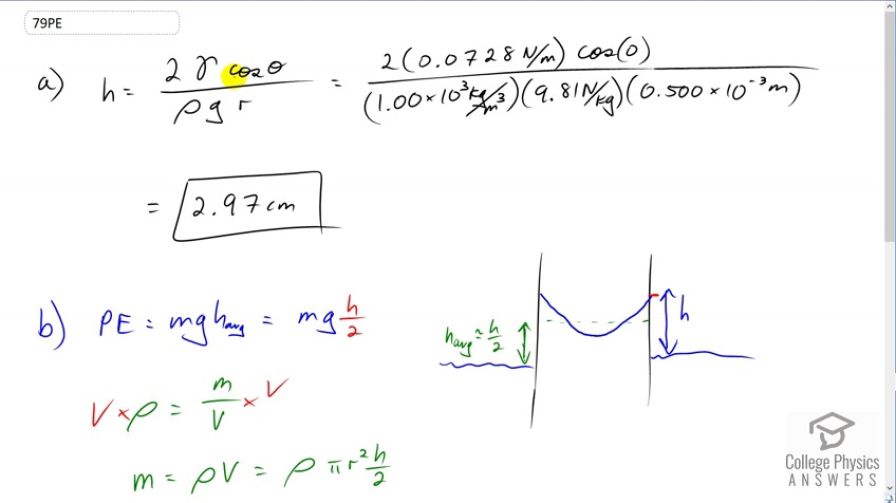 79PE
a) h = 2 γ cosθ / ρ g r = 2(0.0728 N/m) cos(0) / (1.00×10³ kg/m³)(9.81 N/kg)(0.500×10⁻³ m)
= 2.97 cm
b) PE = mgh_avg = mg h/2
h_avg ≈ h/2
h
V × ρ = m/V × V
m = ρV = ρ πr² h/2
College Physics
ANSWERS